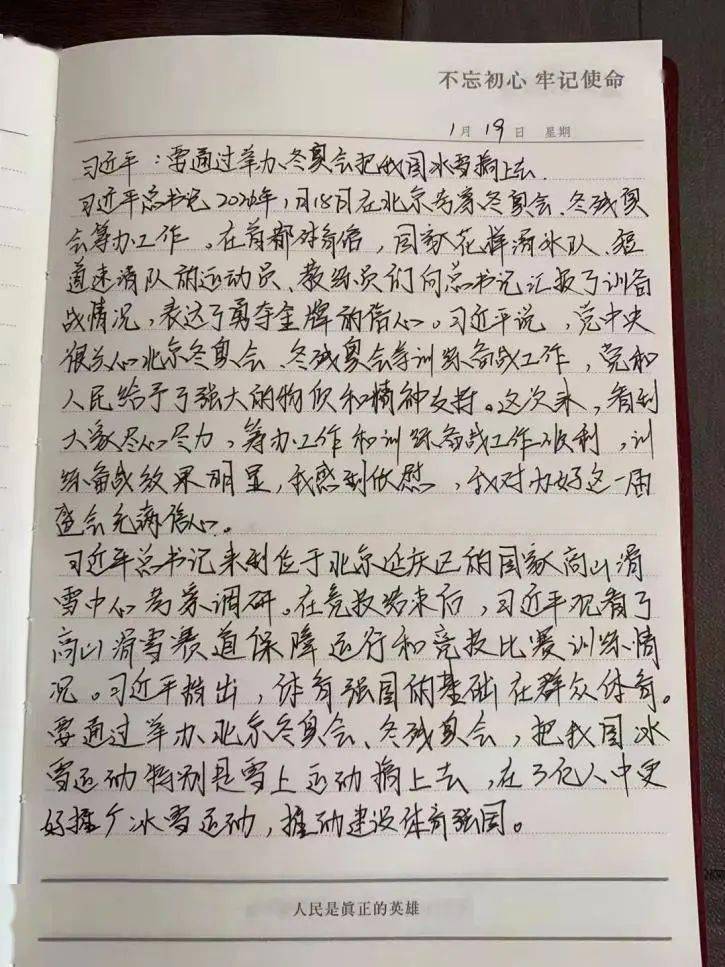 不忘初心 牢记使命
1月19日 星期
习近平：要通过举办冬奥会把我国冰雪搞上去
习近平总书记2021年1月18日在北京考察冬奥会、冬残奥
会筹办工作。在首都体育馆，国家花样滑冰队、短
道速滑队的运动员、教练员们向总书记汇报了训备
战情况，表达了勇夺金牌的信心。习近平说，党中央
很关心北京冬奥会、冬残奥会等训练备战工作，党和
人民给予了强大的物质和精神支持。这次来，看到
大家尽心尽力，筹办工作和训练备战工作顺利，训
练备战效果明显，我感到欣慰，我对办好这一届
盛会充满信心。
习近平总书记来到位于北京延庆区的国家高山滑
雪中心考察调研。在竞技结束后，习近平观看了
高山滑雪赛道保障运行和竞技比赛训练情
况。习近平指出，体育强国的基础在群众体育。
要通过举办北京冬奥会、冬残奥会，把我国冰
雪运动特别是雪上运动搞上去，在3亿人中更
好推广冰雪运动，推动建设体育强国。
人民是真正的英雄